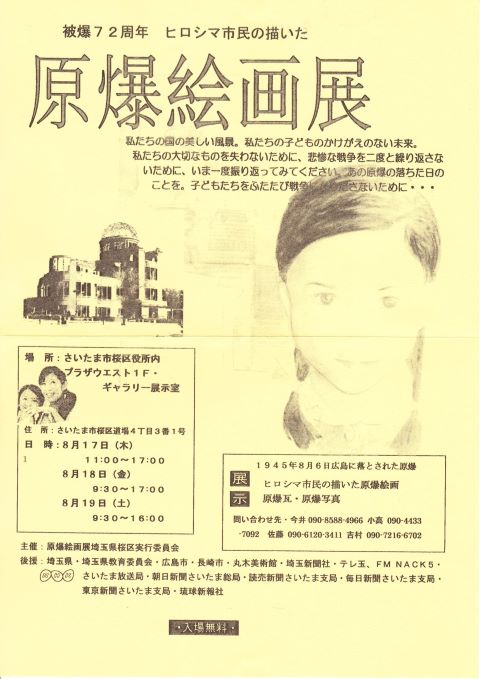 被爆７２周年　ヒロシマ市民の描いた
原爆絵画展
私たちの国の美しい風景。私たちの子どものかけがえのない未来。
私たちの大切なものを失わないために、悲惨な戦争を二度と繰り返さな
いために、いま一度振り返ってみてください。あの原爆の落ちた日の
ことを。子どもたちをふたたび戦争にまきこまないために・・・
場　所：さいたま市桜区役所内
プラザウエスト１Ｆ・
ギャラリー展示室
住　所：さいたま市桜区道場４丁目３番１号
日　時：８月１７日（木）
１１:００～１７:００
８月１８日（金）
９:３０～１７:００
８月１９日（土）
９:３０～１６:００
１９４５年８月６日広島に落とされた原爆
展示
ヒロシマ市民の描いた原爆絵画
原爆瓦・原爆写真
問い合わせ先・今井 090-8588-4966 小高 090-4433
-7092　佐藤 090-6120-3411 吉村 090-7216-6702
主催：原爆絵画展埼玉県桜区実行委員会
後援：埼玉県・埼玉県教育委員会・広島市・長崎市・丸木美術館・埼玉新聞社・テレ玉、ＦＭ ＮＡＣＫ５・
さいたま放送局・朝日新聞さいたま総局・読売新聞さいたま支局・毎日新聞さいたま支局・
東京新聞さいたま支局・琉球新報社
・入場無料・